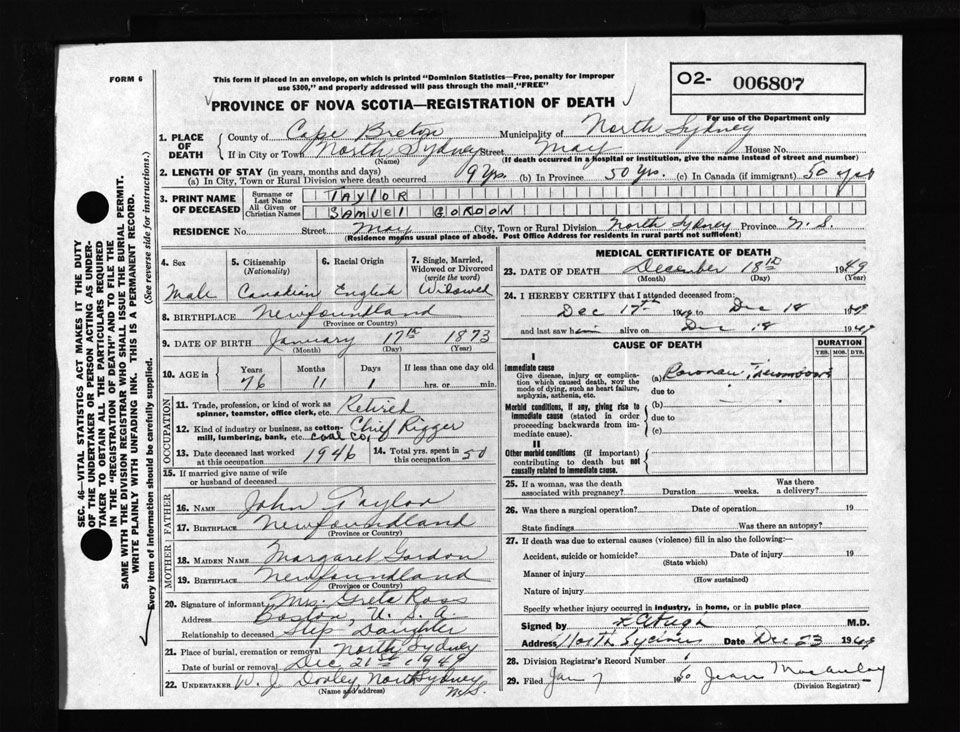 FORM 6
This form if placed in an envelope, on which is printed "Dominion Statistics—Free, penalty for improper
use $300," and properly addressed will pass through the mail "FREE"
O2- 006807
For use of the Department only
PROVINCE OF NOVA SCOTIA—REGISTRATION OF DEATH
1. PLACE OF DEATH
County of Cape Breton Municipality of North Sydney
If in City or Town North Sydney Street May House No.
(Name) (If death occurred in a hospital or institution, give the name instead of street and number)
2. LENGTH OF STAY (in years, months and days)
(a) In City, Town or Rural Division where death occurred 9 Yrs. (b) In Province 50 Yrs. (c) In Canada (if immigrant) 50 yrs
3. PRINT NAME OF DECEASED
Surname or Last Name TAYLOR
All Given or Christian Names SAMUEL GORDON
RESIDENCE No. Street May City, Town or Rural Division North Sydney Province N.S.
(Residence means usual place of abode. Post Office Address for residents in rural parts not sufficient)
4. Sex Male
5. Citizenship (Nationality) Canadian
6. Racial Origin English
7. Single, Married, Widowed or Divorced (write the word) Widowed
8. BIRTHPLACE Newfoundland
(Province or Country)
9. DATE OF BIRTH January 17th 1873
(Month) (Day) (Year)
10. AGE in Years 76 Months 11 Days 1 If less than one day old hrs. or min.
OCCUPATION
11. Trade, profession, or kind of work as spinner, teamster, office clerk, etc. Retired
12. Kind of industry or business, as cotton-mill, lumbering, bank, etc. Chief Rigger
coal co.
13. Date deceased last worked at this occupation 1946 14. Total yrs. spent in this occupation 50
15. If married give name of wife or husband of deceased
FATHER
16. NAME John Taylor
17. BIRTHPLACE Newfoundland
(Province or Country)
MOTHER
18. MAIDEN NAME Margaret Gordon
19. BIRTHPLACE Newfoundland
(Province or Country)
20. Signature of informant Mrs. Greta Ross
Address Boston, U.S.A.
Relationship to deceased Step Daughter
21. Place of burial, cremation or removal North Sydney
Date of burial or removal Dec 21st 1949
22. UNDERTAKER W. J. Dooley North Sydney N.S.
(Name and address)
MEDICAL CERTIFICATE OF DEATH
23. DATE OF DEATH December 18th 1949
(Month) (Day) (Year)
24. I HEREBY CERTIFY that I attended deceased from:
Dec 17th 1949 to Dec 18 1949
and last saw him alive on Dec 18 1949
CAUSE OF DEATH DURATION
YRS. MOS. DYS.
I
Immediate cause
Give disease, injury or complication which caused death, NOT the mode of dying, such as heart failure, asphyxia, asthenia, etc.
(a)
due to
Morbid conditions, if any, giving rise to immediate cause (stated in order proceeding backwards from immediate cause).
(b)
due to
(c)
II
Other morbid conditions (if important) contributing to death but not causally related to immediate cause.
25. If a woman, was the death associated with pregnancy? Duration weeks. Was there a delivery?
26. Was there a surgical operation? Date of operation 19
State findings Was there an autopsy?
27. If death was due to external causes (violence) fill in also the following:—
Accident, suicide or homicide? Date of injury 19
(State which)
Manner of injury
(How sustained)
Nature of injury
Specify whether injury occurred in industry, in home, or in public place
Signed by M.D.
Address North Sydney Date Dec 23 1949
28. Division Registrar's Record Number 1
29. Filed Jan 7 1950 Jean MacAulay
(Division Registrar)
SEC. 46—VITAL STATISTICS ACT MAKES IT THE DUTY
OF THE UNDERTAKER OR PERSON ACTING AS UNDER-
TAKER TO OBTAIN ALL THE PARTICULARS REQUIRED
IN THE "REGISTRATION OF DEATH" AND TO FILE THE
SAME WITH THE DIVISION REGISTRAR WHO SHALL ISSUE THE BURIAL PERMIT.
WRITE PLAINLY WITH UNFADING INK. THIS IS A PERMANENT RECORD.
Every item of information should be carefully supplied. (See reverse side for instructions.)